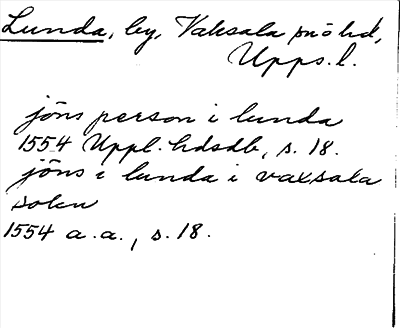 Lunda, by, Vaksala sn o hd,
Upps.l.
jöns person i lunda
1554 Uppl.hdsdb, s. 18.
jöns i lunda i vaxsala
sokn
1554 a.a., s. 18.